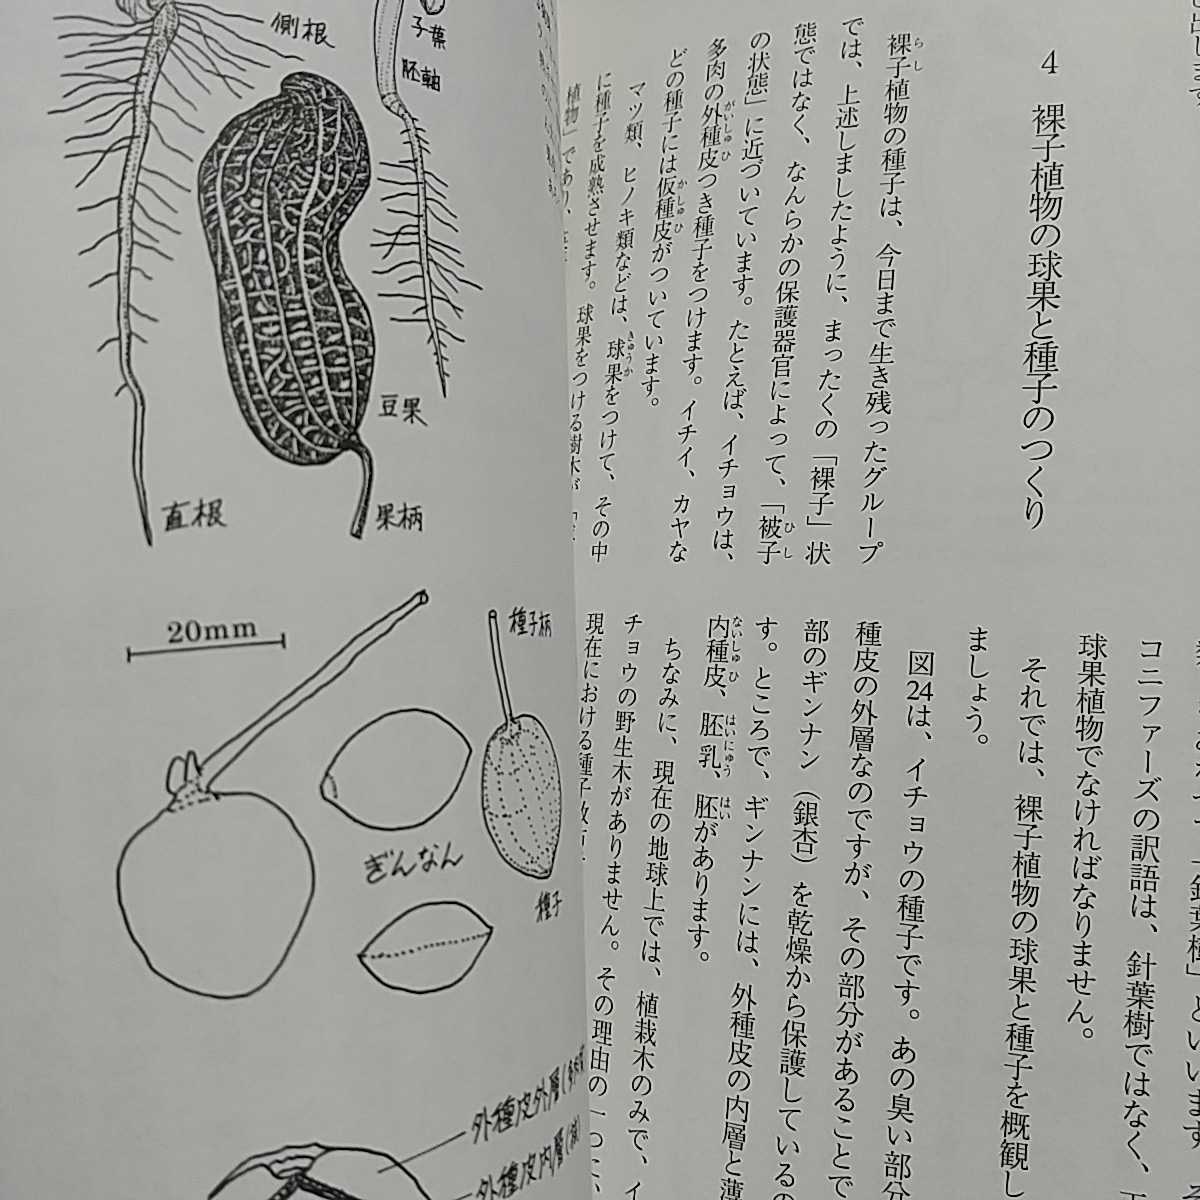 出します
4　裸子植物の球果と種子のつくり
裸子植物の種子は、今日まで生き残ったグループ
らし
では、上述しましたように、まったくの「裸子」状
態ではなく、なんらかの保護器官によって、「被子
ひし
の状態」に近づいています。たとえば、イチョウは、
多肉の外種皮つき種子をつけます。イチイ、カヤな
がいしゅひ
どの種子には仮種皮がついています。
かしゅひ
マツ類、ヒノキ類などは、球果をつけて、その中
きゅうか
に種子を成熟させます。球果をつける樹木が
植物」であり、
針葉樹」といいます
コニファーズの訳語は、針葉樹ではなく、
球果植物でなければなりません。
それでは、裸子植物の球果と種子を概観し
ましょう。
図24は、イチョウの種子です。あの臭い部分
種皮の外層なのですが、その部分があることで
部のギンナン（銀杏）を乾燥から保護しているの
す。ところで、ギンナンには、外種皮の内層と薄
内種皮、胚乳、胚があります。
ないしゅひ
はいにゅう
はい
ちなみに、現在の地球上では、植栽木のみで、イ
チョウの野生木がありません。その理由の一つに、
現在における種子
側根
子葉
胚軸
豆果
直根
果柄
20mm
種子柄
ぎんなん
種子
外種皮外層(多肉
外種皮内層(